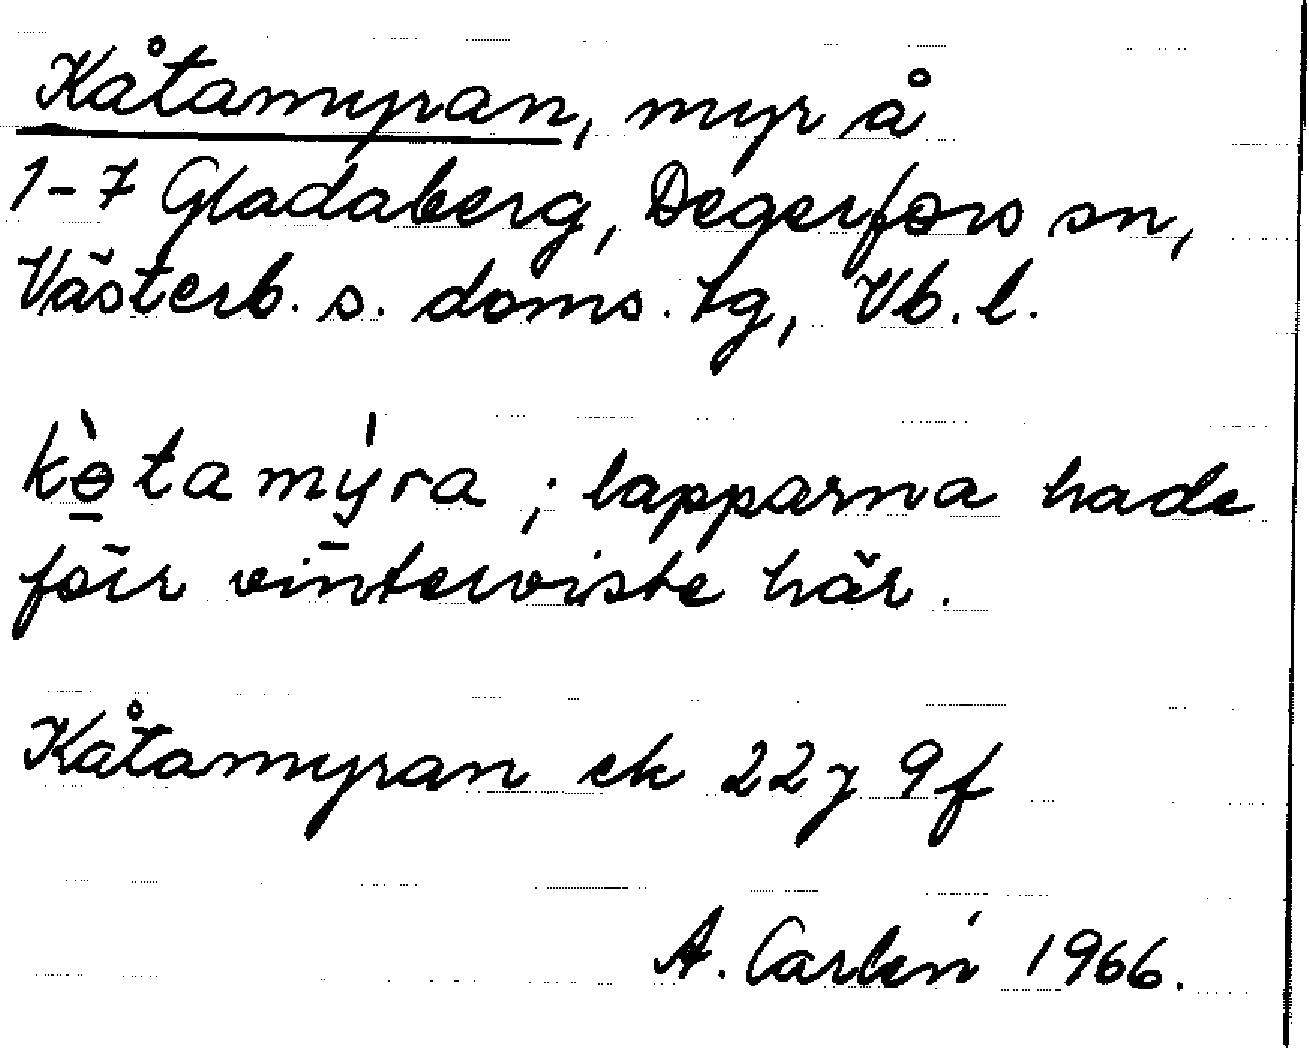 Kåtamyran, myr å
1-7 Gladaberg, Degerfors sn,
Västerb. s. doms. tg, Vb. l.
kɵ̠̀tamý̠ra ; lapparna hade
förr vinterviste här.
Kåtamyran ek 22J 9f
A. Carlén 1966.